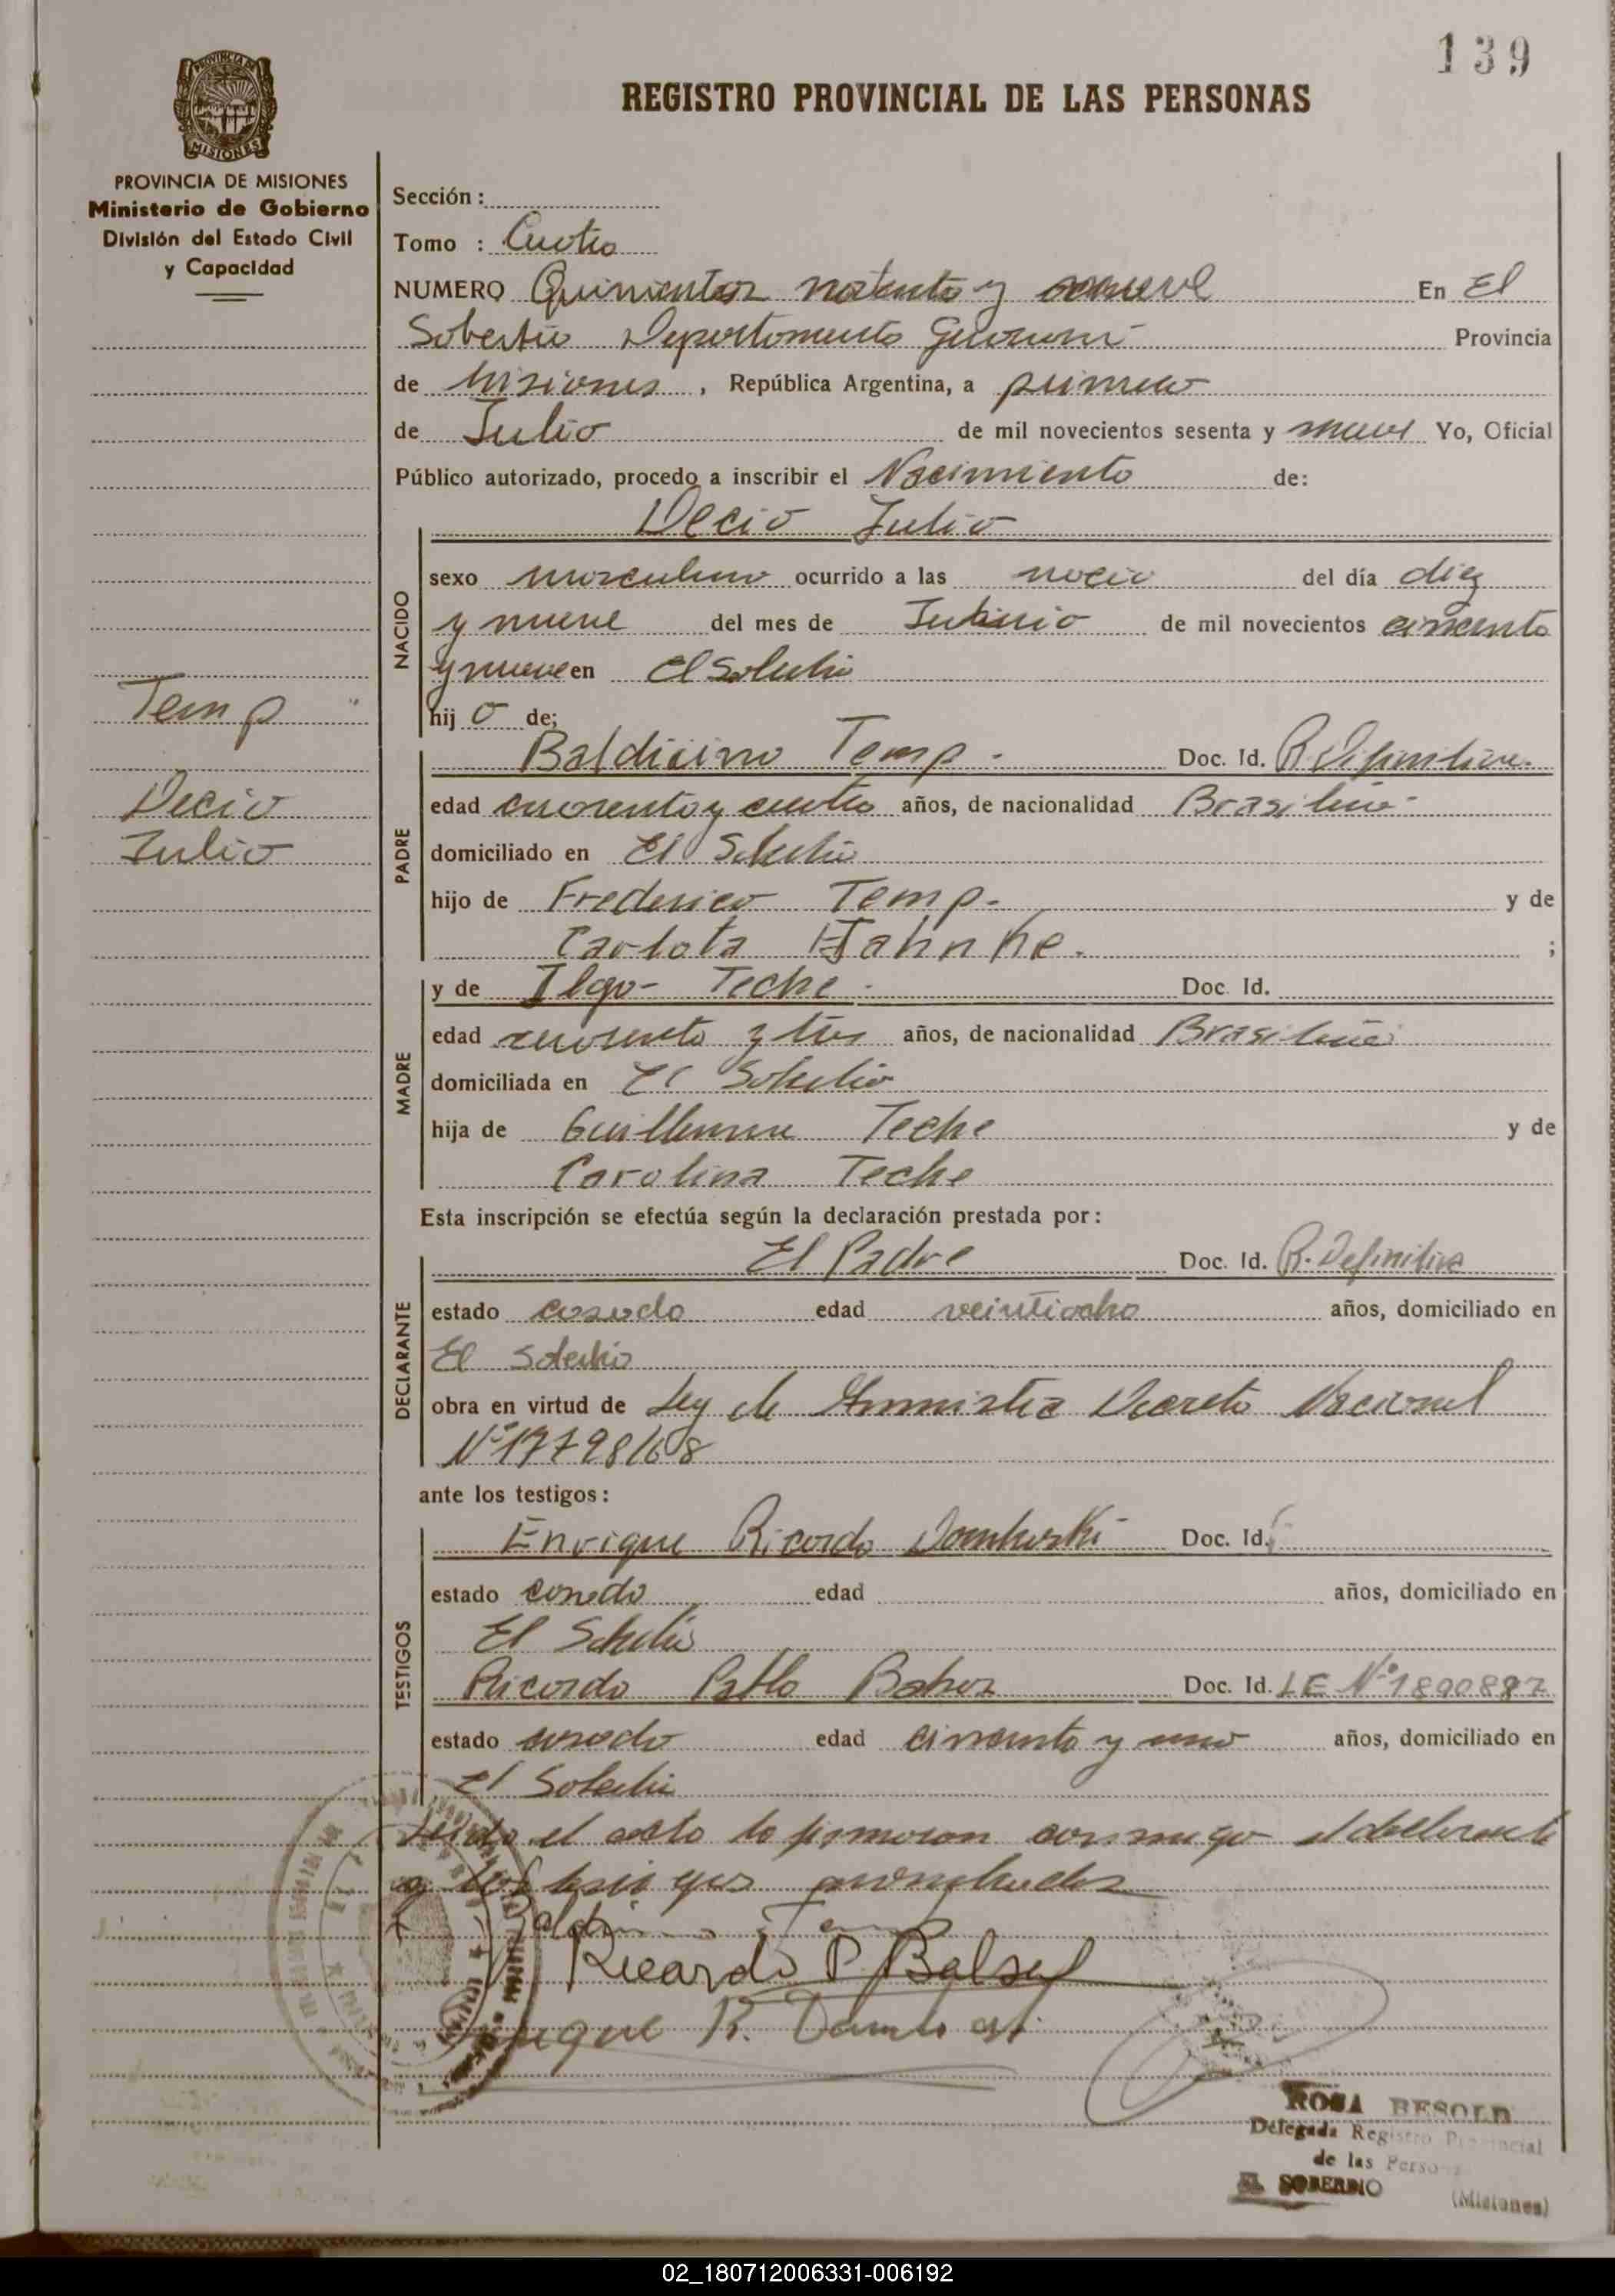 139
REGISTRO PROVINCIAL DE LAS PERSONAS
PROVINCIA DE MISIONES
MISIONES
PROVINCIA DE MISIONES
Ministerio de Gobierno
División del Estado Civil
y Capacidad
Sección:
Tomo : Cuatro
NUMERO Quinientos y nueve En El
Soberbio Departamento Guarani Provincia
de Misiones, República Argentina, a primero
de Julio de mil novecientos sesenta y nueve Yo, Oficial
Público autorizado, procedo a inscribir el Nacimiento de:
Decio Julio
NACIDO
sexo masculino ocurrido a las del día diez
y nueve del mes de de mil novecientos cincuenta
y nueve en El Soberbio
hij o de;
Temp
Decio
Julio
PADRE
Baldicino Temp. Doc. Id. R. Definitiva.
edad cuarenta y cuatro años, de nacionalidad
domiciliado en El Soberbio
hijo de Frederico Temp. y de
Carlota Hahnke. ;
MADRE
y de Ilga Teche Doc. Id.
edad cuarenta y tres años, de nacionalidad
domiciliada en El Soberbio
hija de Teche y de
Carolina Teche
Esta inscripción se efectúa según la declaración prestada por:
DECLARANTE
El Padre Doc. Id. R. Definitiva
estado casado edad veintiocho años, domiciliado en
El Soberbio
obra en virtud de Ley de Amnistia Decreto Nacional
Nº 17798/68
ante los testigos:
TESTIGOS
Enrique Ricardo Doc. Id.
estado casado edad años, domiciliado en
El Soberbio
Ricardo Pablo Doc. Id. LE Nº 1890887
estado casado edad cincuenta y uno años, domiciliado en
El Soberbio
Leida el acta la firmaron conmigo el declarante
y los testigos
Temp
Ricardo P.
Enrique R.
ROSA BESOLD
Delegada Registro Provincial
de las Personas
EL SOBERBIO (Misiones)
02_180712006331-006192